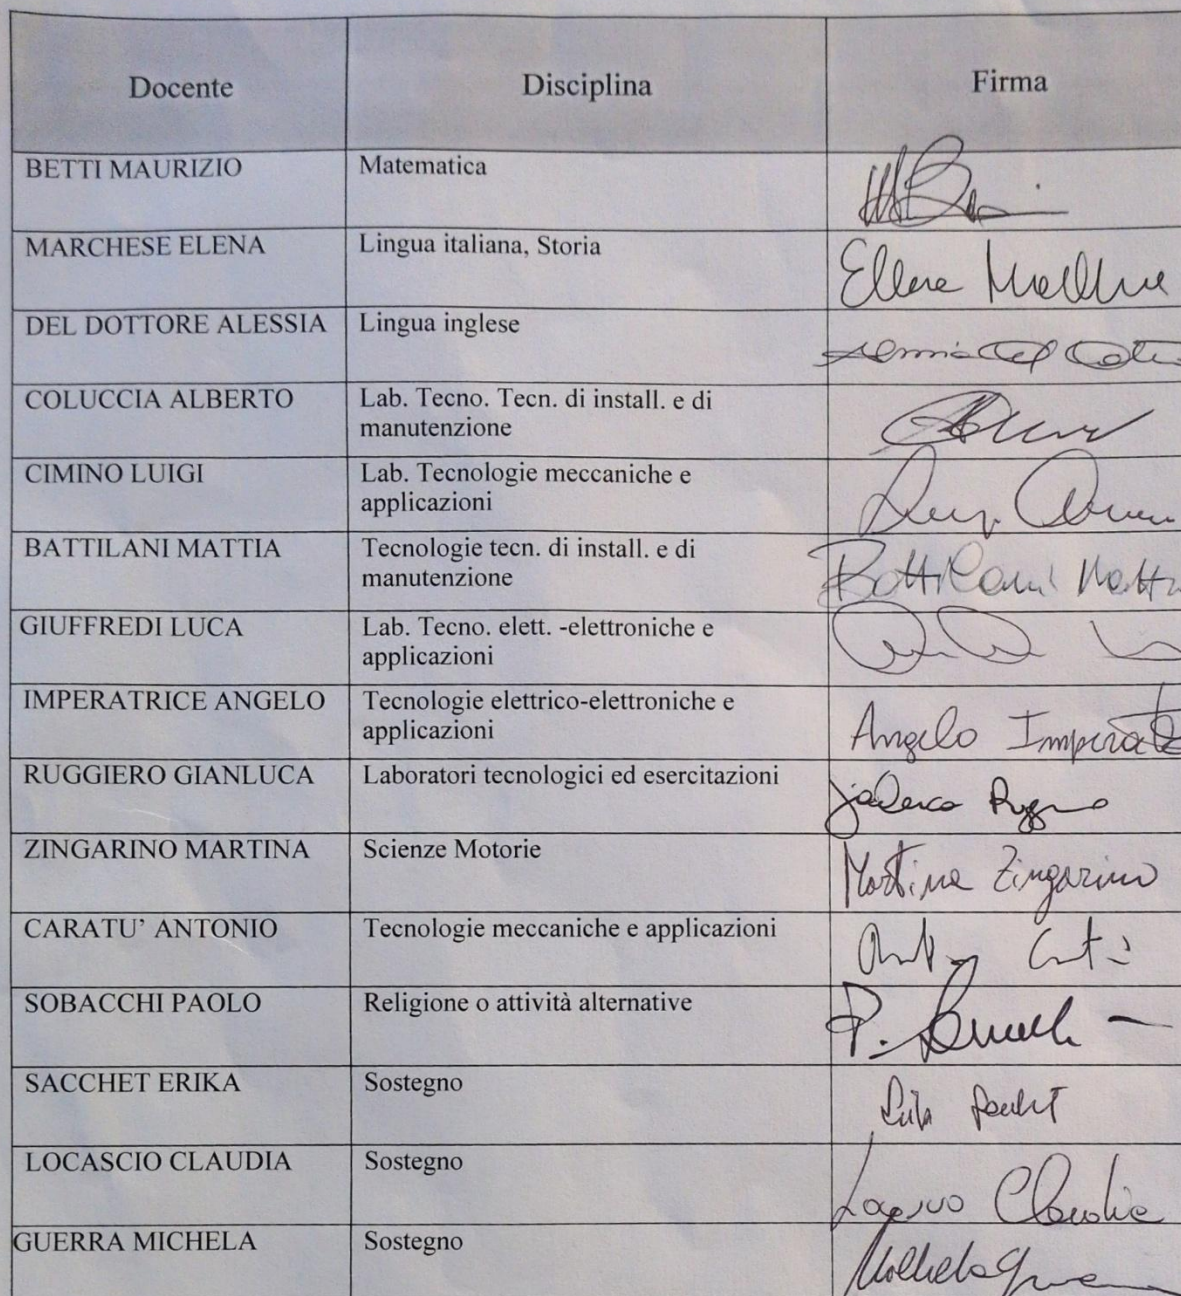 Docente Disciplina Firma
BETTI MAURIZIO Matematica
MARCHESE ELENA Lingua italiana, Storia
DEL DOTTORE ALESSIA Lingua inglese
COLUCCIA ALBERTO Lab. Tecno. Tecn. di install. e di
manutenzione
CIMINO LUIGI Lab. Tecnologie meccaniche e
applicazioni
BATTILANI MATTIA Tecnologie tecn. di install. e di
manutenzione Battilani
GIUFFREDI LUCA Lab. Tecno. elett. -elettroniche e
applicazioni
IMPERATRICE ANGELO Tecnologie elettrico-elettroniche e
applicazioni Angelo
RUGGIERO GIANLUCA Laboratori tecnologici ed esercitazioni
ZINGARINO MARTINA Scienze Motorie
Martina Zingarino
CARATU’ ANTONIO Tecnologie meccaniche e applicazioni
SOBACCHI PAOLO Religione o attività alternative
P.
SACCHET ERIKA Sostegno
LOCASCIO CLAUDIA Sostegno
Claudia
GUERRA MICHELA Sostegno